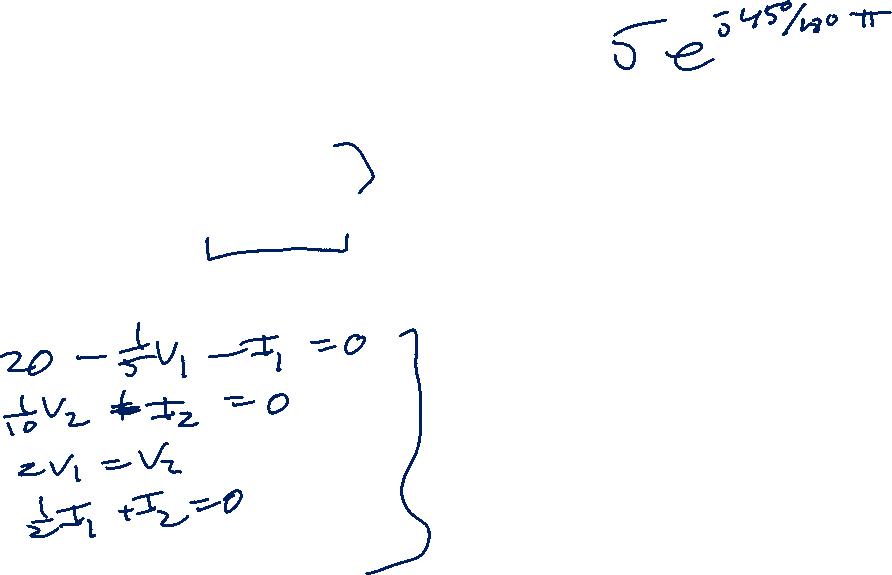 5 e^{j45°/180 π}
20 - 1/5 V₁ - I₁ = 0
1/10 V₂ + I₂ = 0
2V₁ = V₂
1/2 I₁ + I₂ = 0